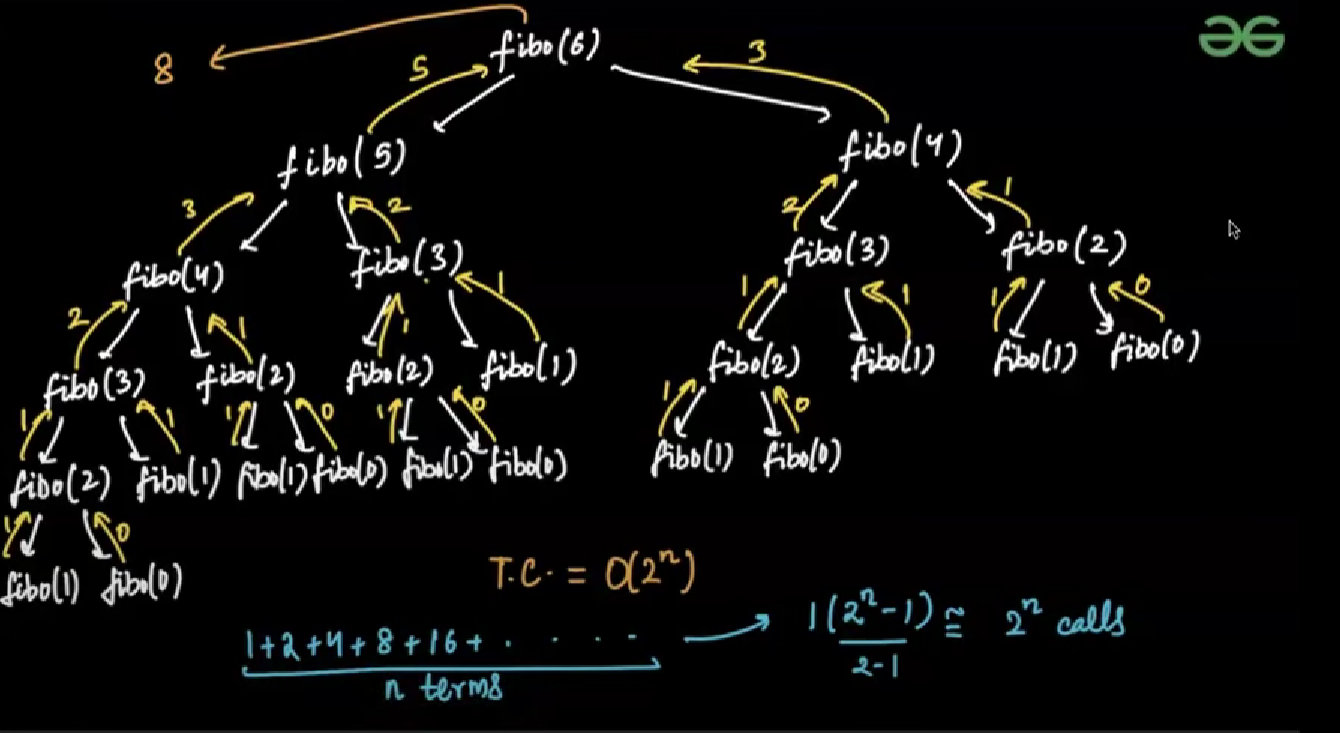 8
fibo(6)
5
3
fibo(5)
fibo(4)
3
2
2
1
fibo(4)
fibo(3)
fibo(3)
fibo(2)
2
1
1
1
1
1
1
0
fibo(3)
fibo(2)
fibo(2)
fibo(1)
fibo(2)
fibo(1)
fibo(1)
fibo(0)
1
1
1
0
1
0
1
0
fibo(2)
fibo(1)
fibo(1)
fibo(0)
fibo(1)
fibo(0)
fibo(1)
fibo(0)
1
0
fibo(1)
fibo(0)
T.C. = O(2ⁿ)
1+2+4+8+16+ . . . . .
n terms
1(2ⁿ-1) ≅ 2ⁿ calls
2-1